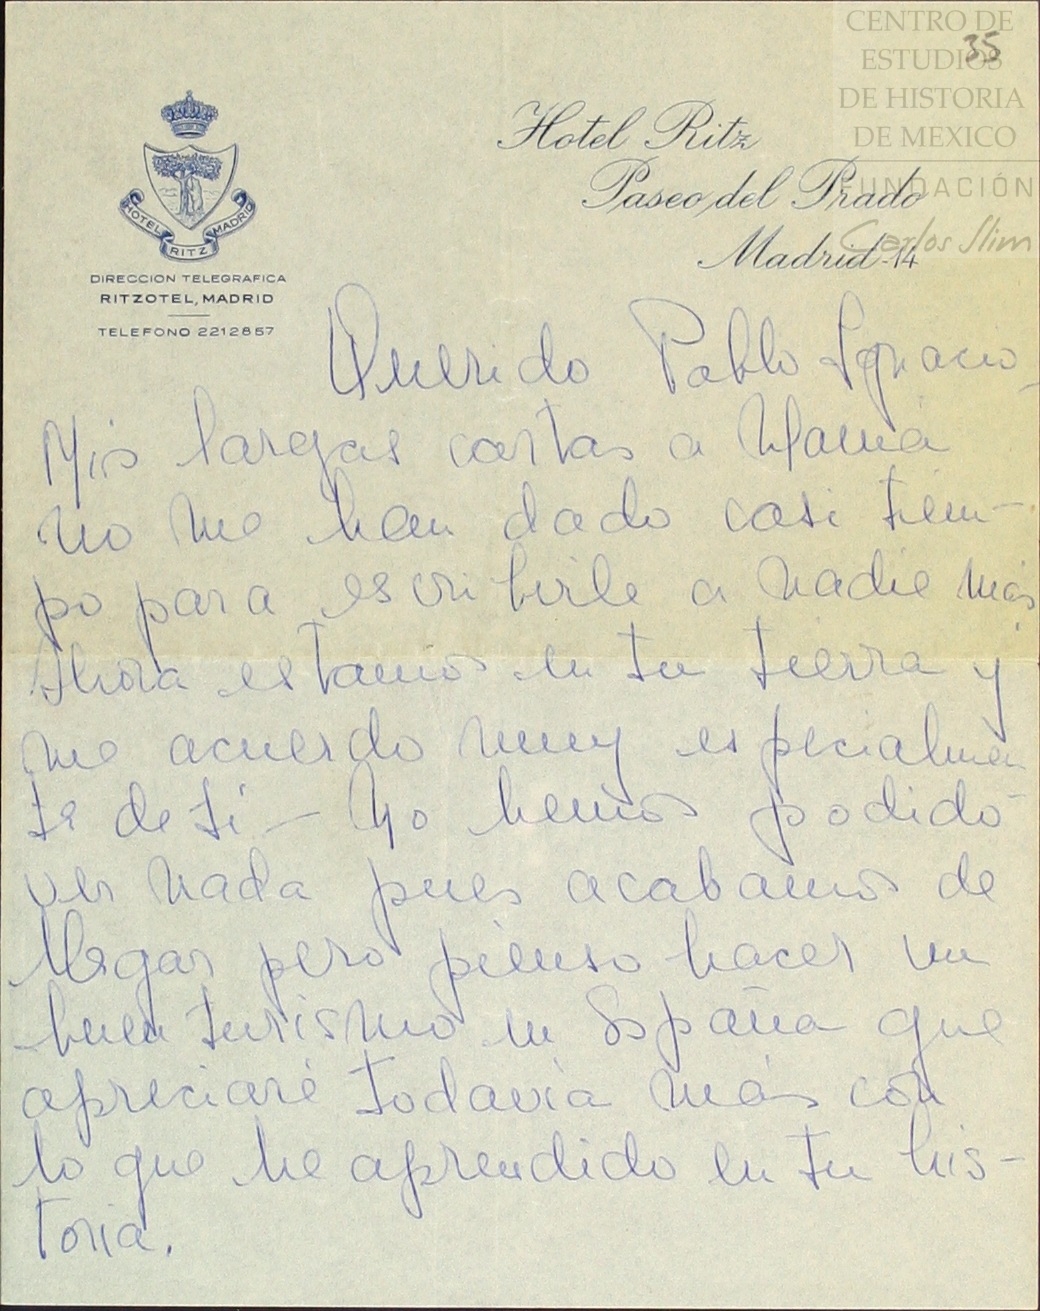 CENTRO DE
ESTUDIOS
35
DE HISTORIA
DE MEXICO
FUNDACIÓN
Carlos Slim
Hotel Ritz
Paseo del Prado
Madrid-14
HOTEL RITZ MADRID
DIRECCION TELEGRAFICA
RITZOTEL, MADRID
TELEFONO 2212857
Querido Pablo Ignacio,
Mis largas cartas a Mamá
no me han dado casi tiem-
po para escribirle a nadie más
Ahora estamos en tu tierra y
me acuerdo muy especialmen
te de ti - No hemos podido
ver nada pues acabamos de
llegar pero pienso hacer un
buen turismo en España que
apreciaré todavía más con
lo que he aprendido en tu his-
toria.